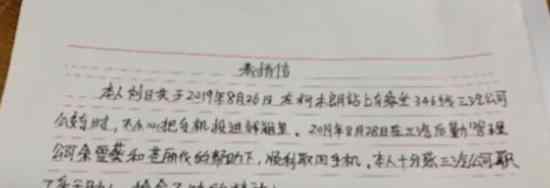 表扬信
本人刘日庆于2019年8月26日在柯木朗站上车乘坐346线三汽公司
公交车时,不小心把手机投进钱箱里。2019年8月28日在三汽后勤管理
公司余雪葵和 的帮助下,顺利取回手机。本人十分感三汽公司职